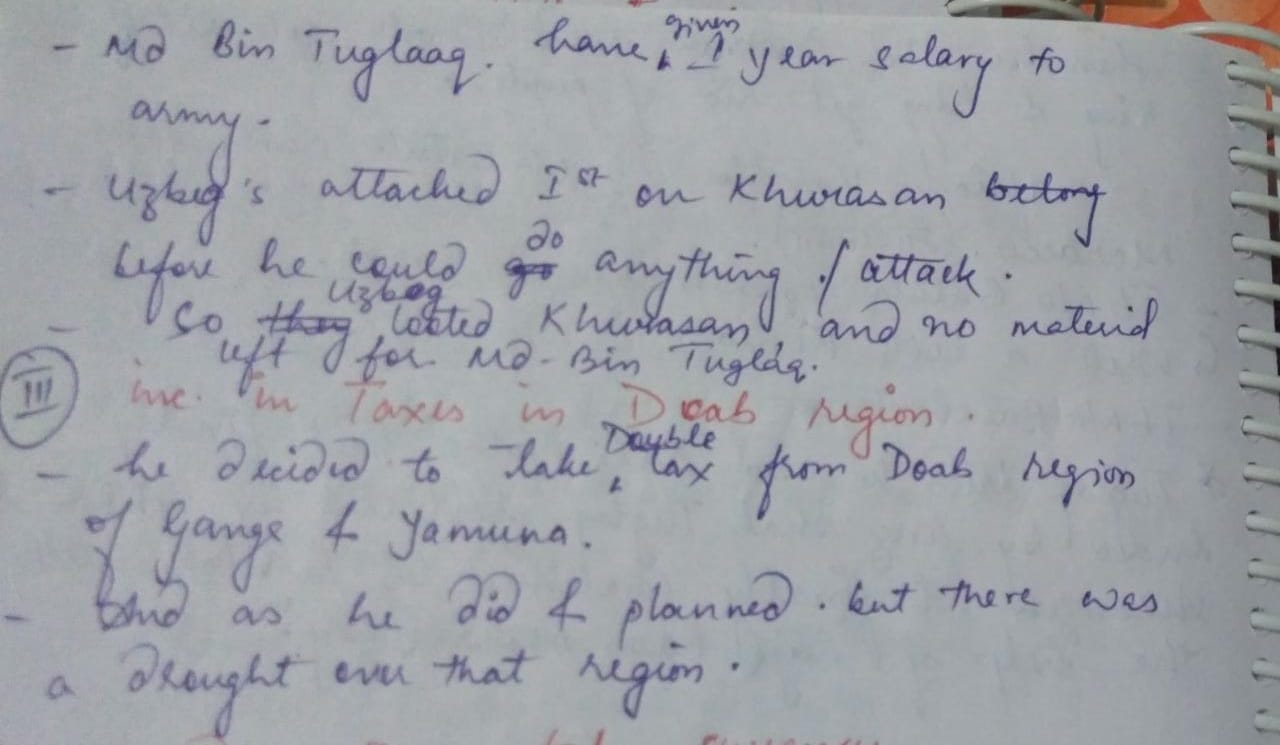 - Md Bin Tuglaaq. have given 1 year salary to
army.
- Uzbeg's attached Ist on Khurasan belong
before he could go do anything / attack.
- So they Uzbeg looted Khurasan, and no material
left for Md. Bin Tuglaq.
III inc. in Taxes in Doab region.
- he decided to take Double tax from Doab region
of Gange & Yamuna.
- as he did & planned. but there was
a drought over that region.